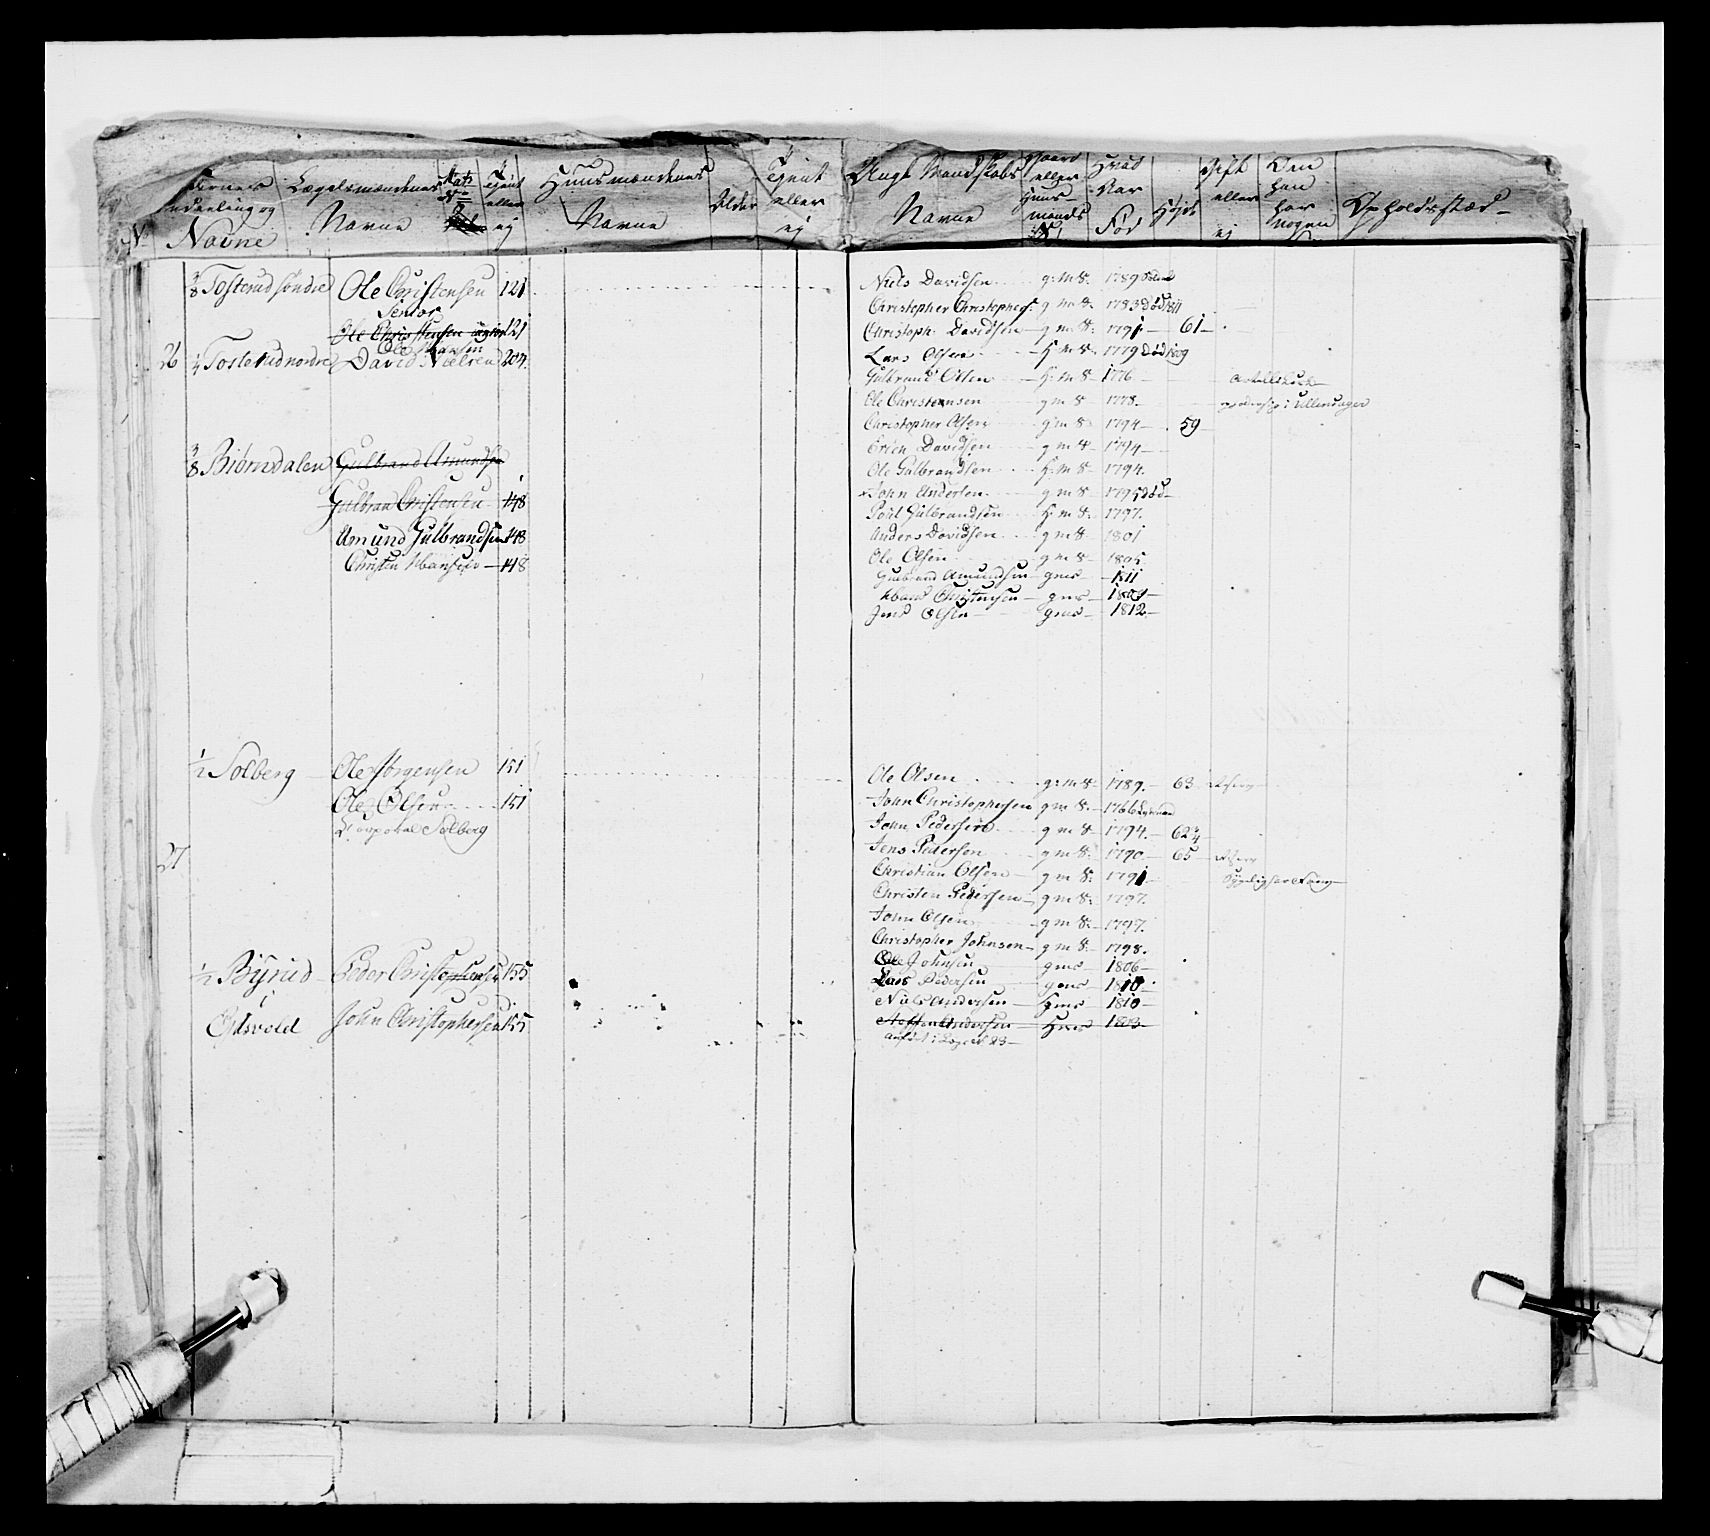 No
Navne
Lægdsmændenes
Navne
Tient
eller
ej
Huusmændenes
Navne
Alder
Tient
eller
ej
Ungt Mandskabs
Navne
Gaard
eller
Huus-
mands
S.
Hvad
Aar
Fød
Højde
Gift
eller
ej
Om
han
har
nogen
Opholdsstæd-
26
3/8 Tosterud søndre Ole Christensen 121
Senior
Ole Christensen 121
Ole Hansen
1/4 Tosterud nordre David Nielsen 204
3/8 Biørndalen Gulbrand Amundsen
Gulbran Christensen 148
Amund Gulbrandsen 148
Christen Hansen 148
Niels Davidsen g: m S: 1789
Christopher Christophers: g m S: 1783 død 1811
Christoph: Davidsen g m S: 1791 61
Lars Olsen H: m S: 1779 død 1809
Gulbrand Olsen H: m S 1776
Ole Christensen g m S 1778 Ullensager
Christopher Olsen g m S 1794 59
Erich Davidsen g m S 1794
Ole Gulbrandsen H: m S 1794
John Andersen g m S 1795 død
Poul Gulbrandsen H: m S: 1797
Anders Davidsen g m S 1801
Ole Olsen g m S 1805
Gulbrand Amundsen gms 1811
Hans Christensen gms 1809
Jens Olsen gms 1812
27
1/2 Solberg Ole Jørgensen 151
Ole Olsen 151
Corporal Solberg
1/2 Byrud Peder Christophersen 155
i
Eidsvold John Christophersen 155
Ole Olsen g: m S: 1789. 63
John Christophersen g m S: 1766
John Pedersen g m S 1794. 62 3/4
Jens Pedersen g m S: 1790 65
Christian Olsen g m S: 1791
Christen Pedersen g m S: 1797.
John Olsen g m S: 1797.
Christopher Johnsen g m S: 1798.
Ole Johnsen gms 1806
Lars Pedersen gms 1810
Niels Andersen Hms 1810
Andersen Hms 1803
anført i Læge N 23